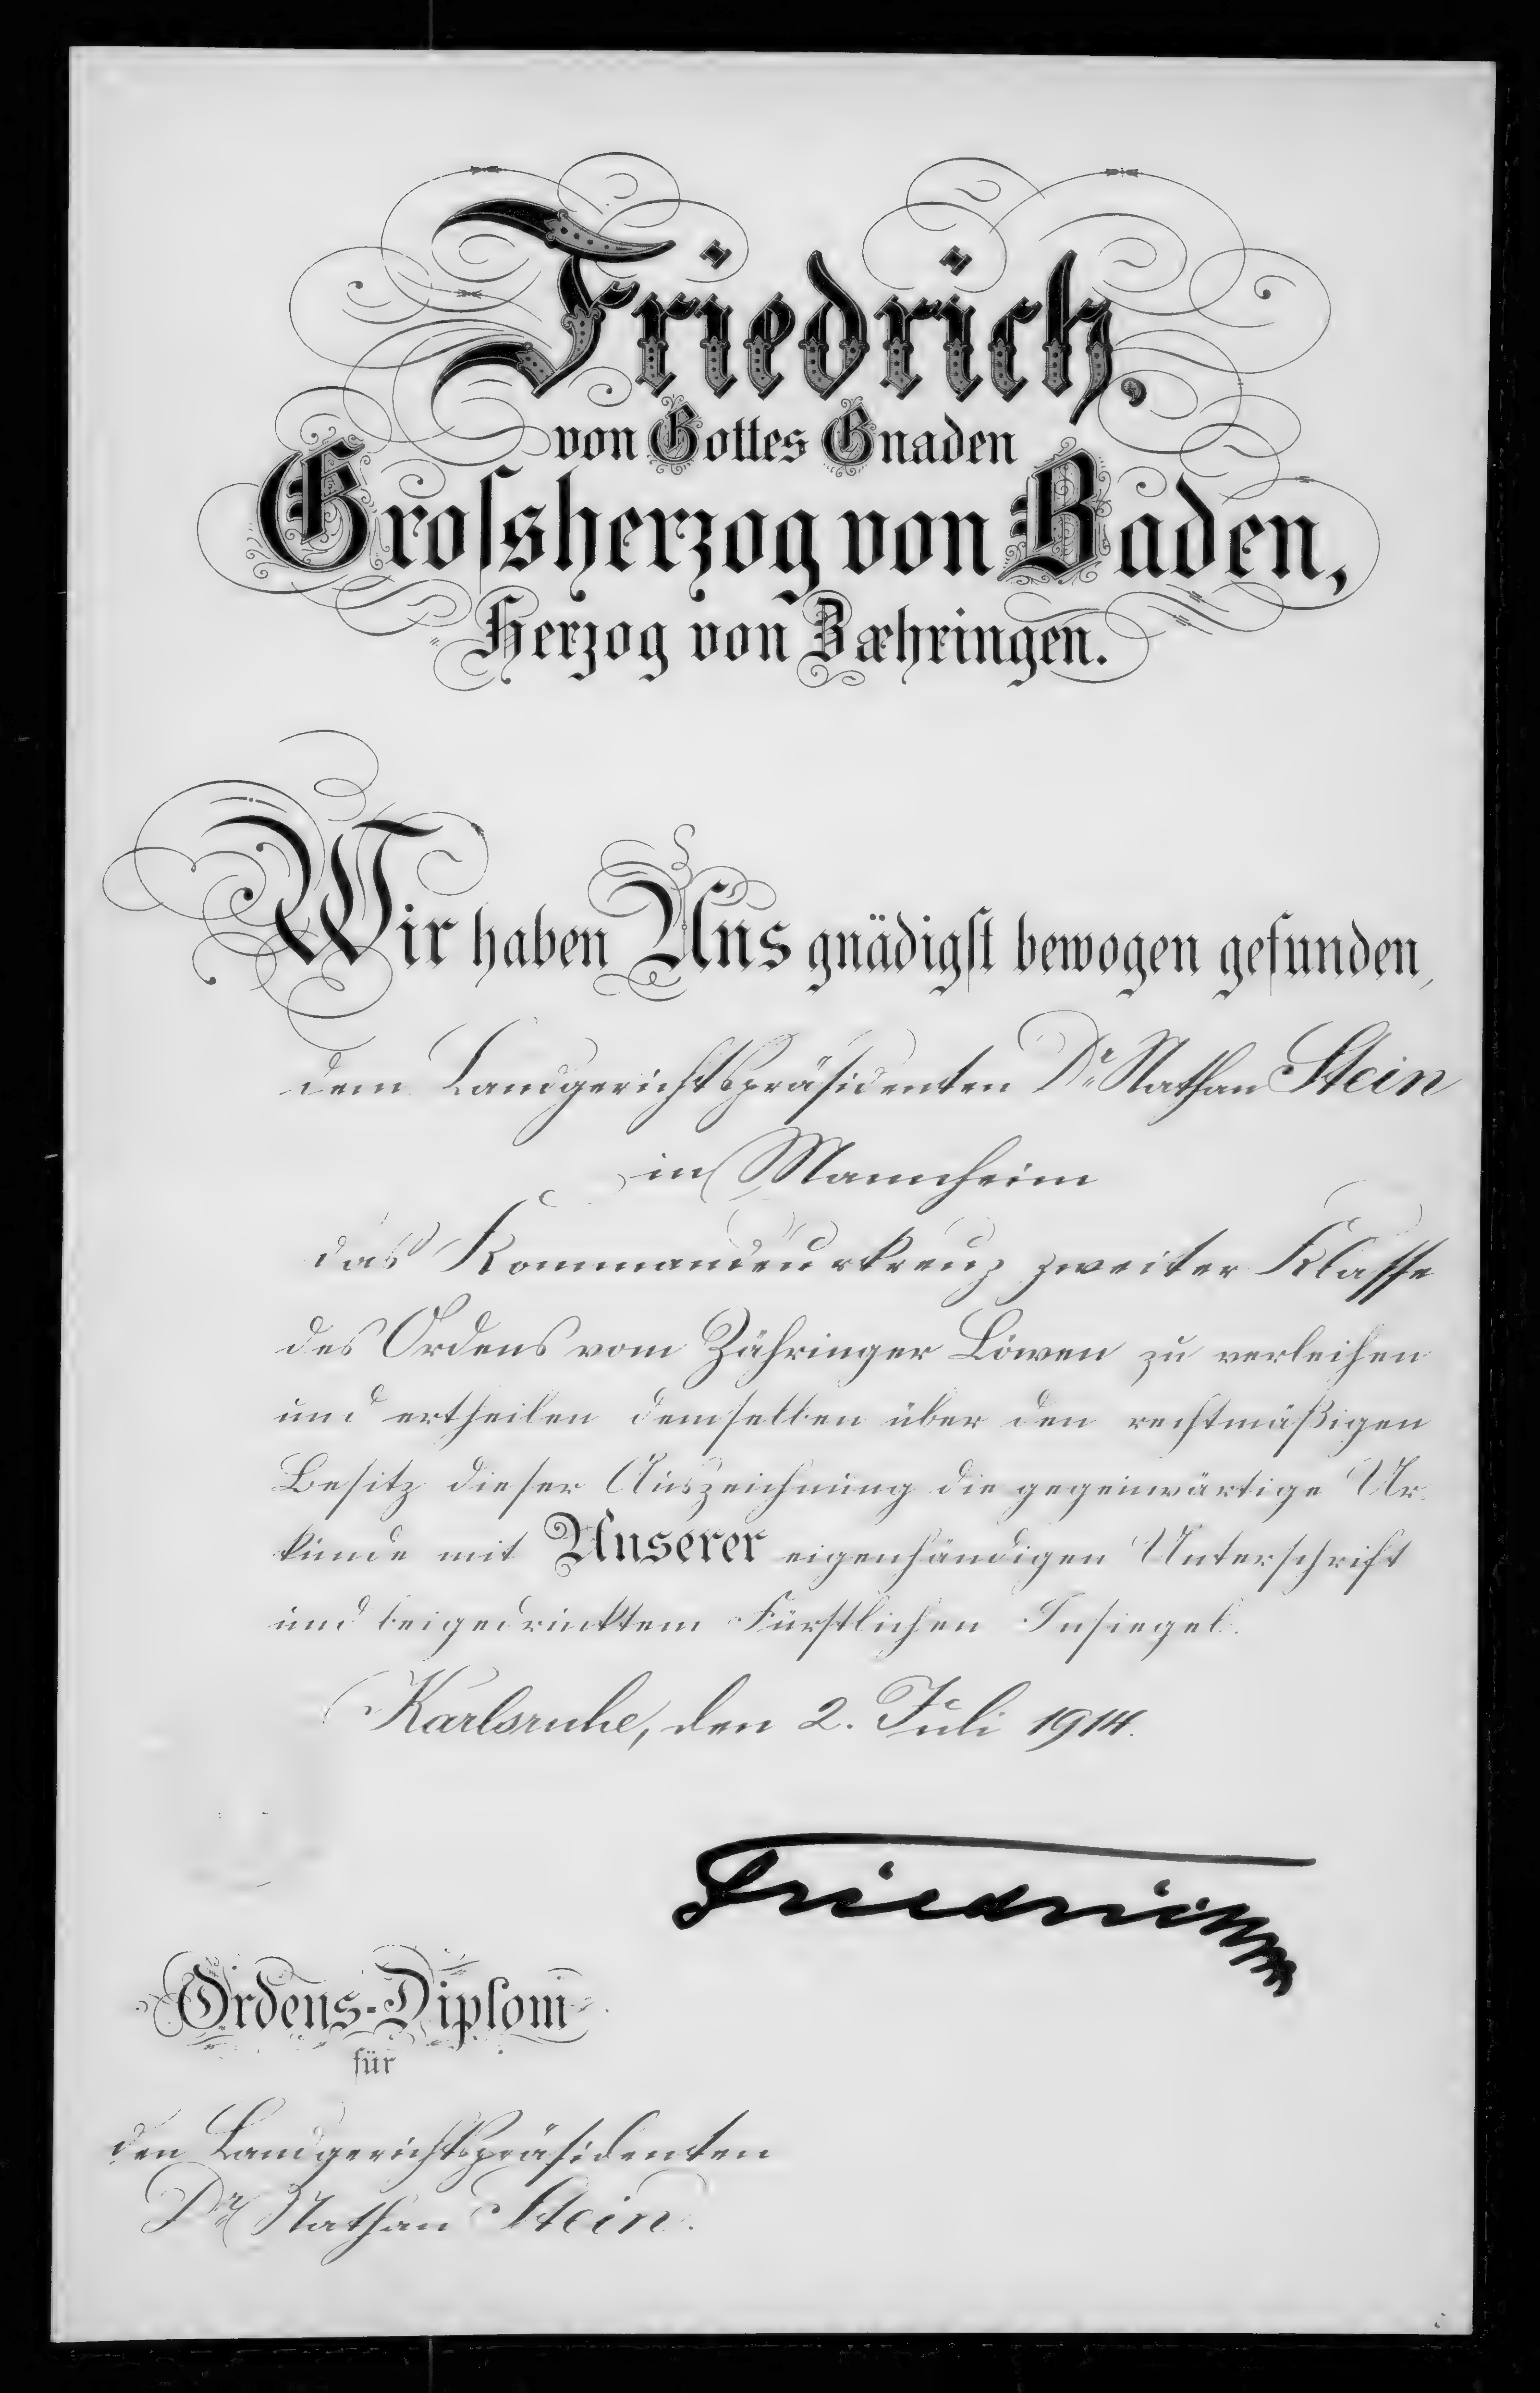 Friedrich,
von Gottes Gnaden
Grossherzog von Baden,
Herzog von Zæhringen.
Wir haben Uns gnädigst bewogen gefunden,
dem Landgerichtspräsidenten Dr. Nathan Stein
in Mannheim
das Kommandeurkreuz zweiter Klasse
des Ordens vom Zähringer Löwen zu verleihen
und ertheilen demselben über den rechtmäßigen
Besitz dieser Auszeichnung die gegenwärtige Ur-
kunde mit Unserer eigenhändigen Unterschrift
und beigedrucktem Fürstlichen Insiegel.
Karlsruhe, den 2. Juli 1914.
Friedrich
Ordens-Diplom
für
den Landgerichtspräsidenten
Dr. Nathan Stein.